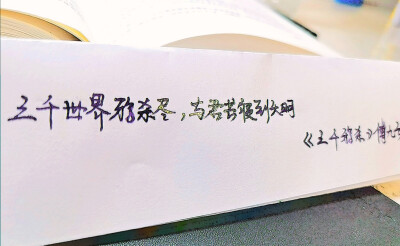 三千世界鸦杀尽,与君共寝到天明
《三千鸦杀》傅九